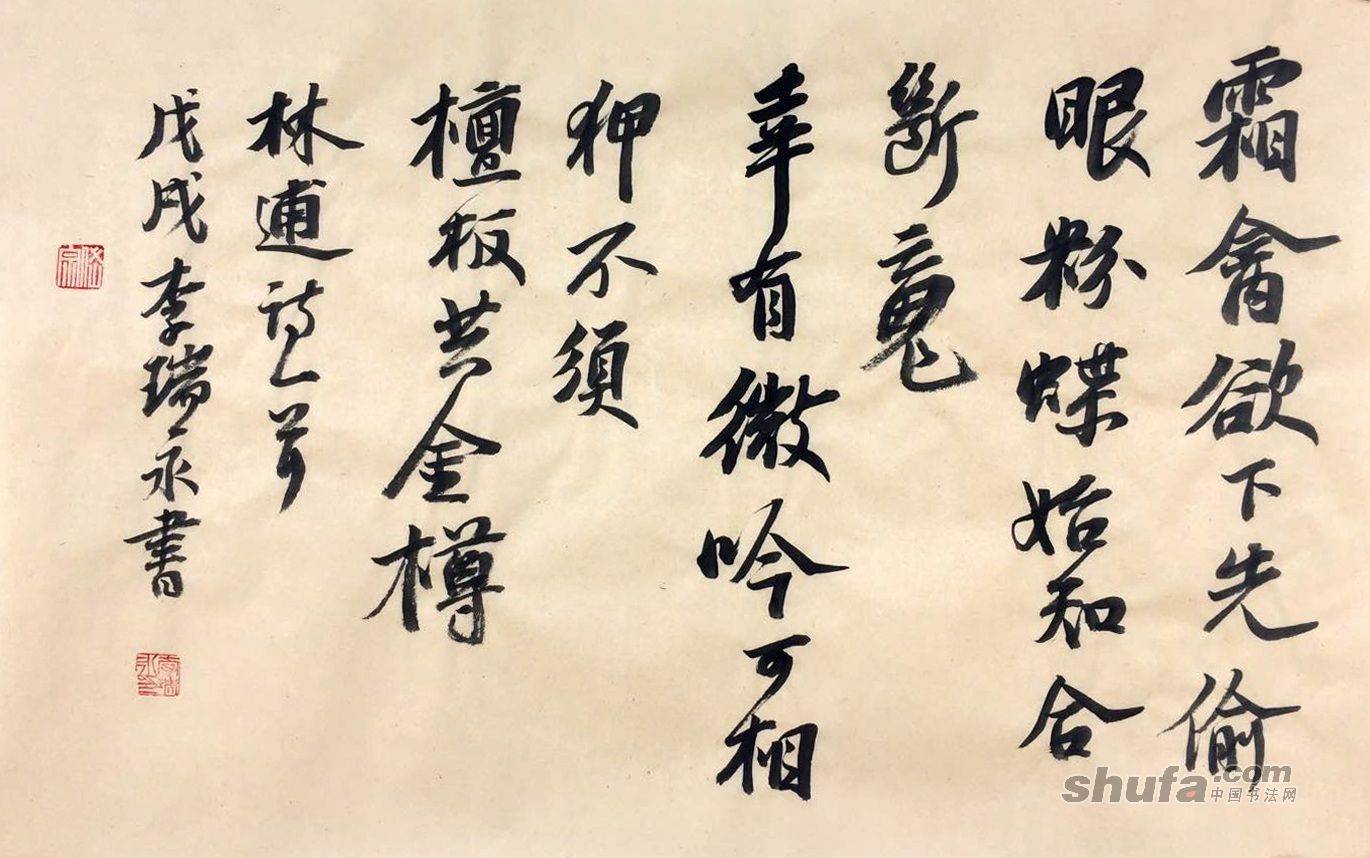 霜禽欲下先偷
眼粉蝶始知合
斷魂
幸有微吟可相
狎不須
檀板共金樽
林逋詩一首
戊戌李瑞永書
shufa.com
中国书法网